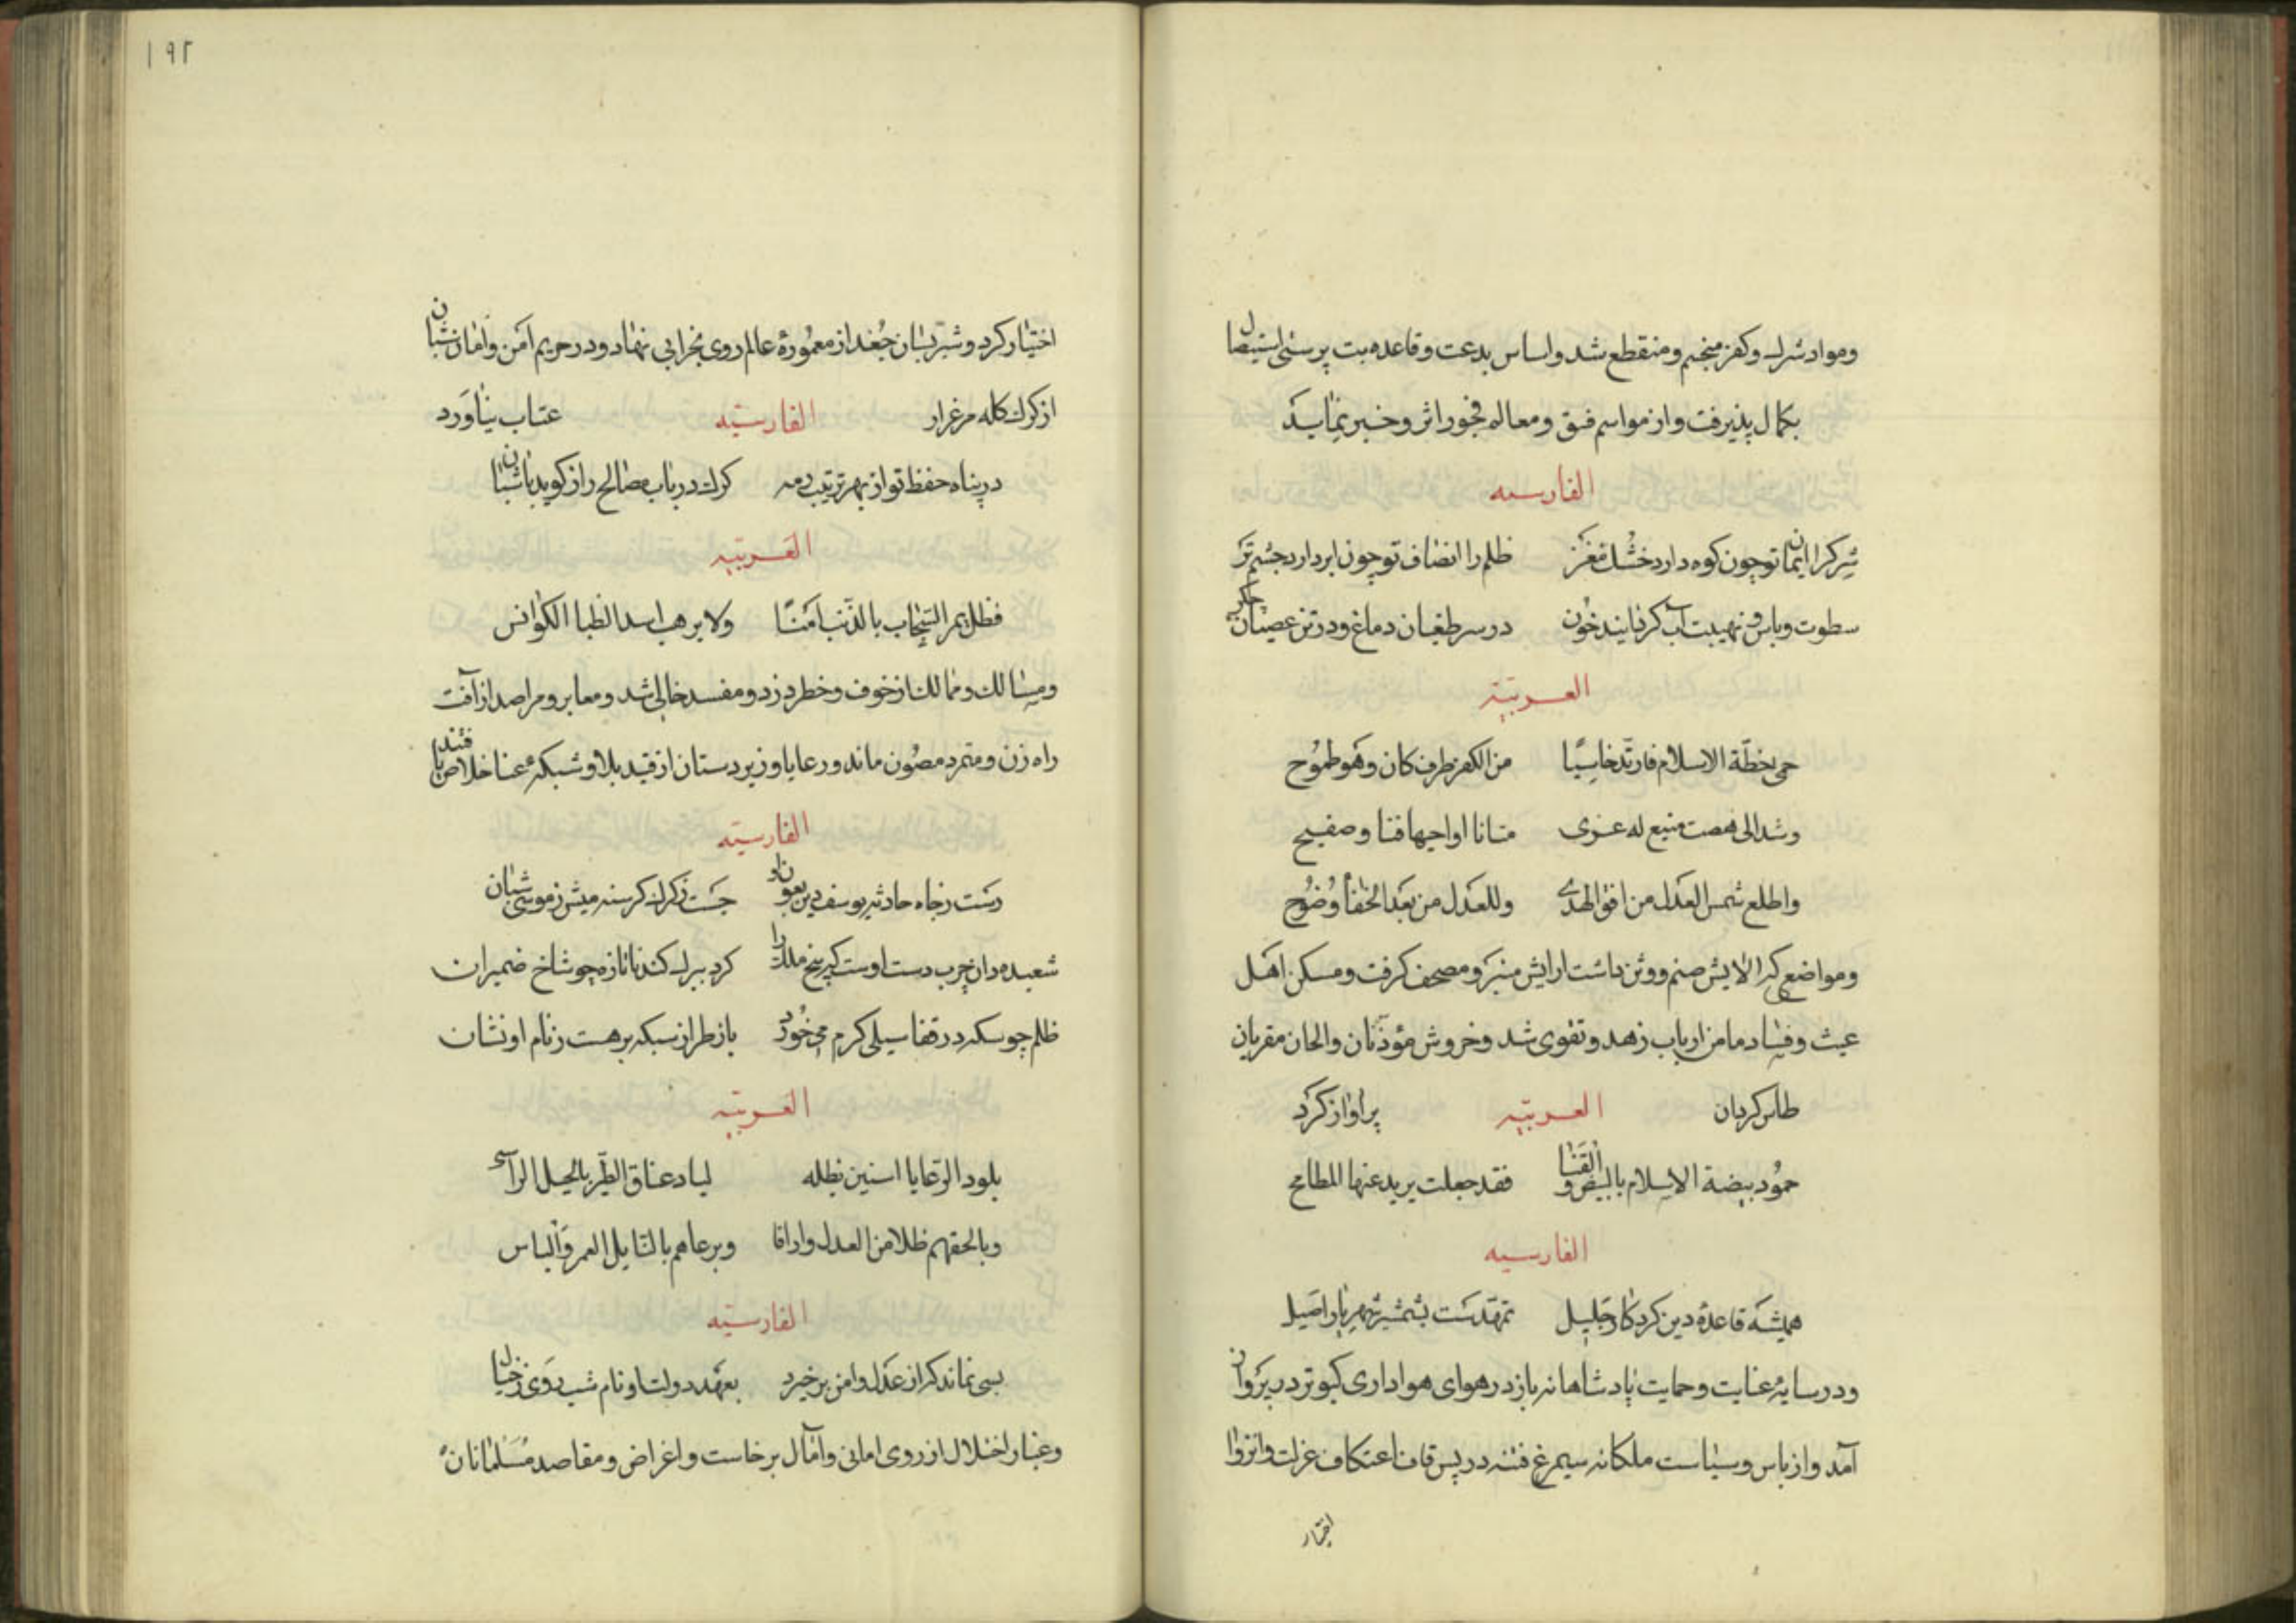 ومواد شرك وكفر منجسم ومنقطع شد واساس بدعت وقاعده بت پرستی استیصال
بكمال پذیرفت واز مواسم فسق ومعالم فجور اثر وخبر نماند
الفارسیه
شرك را ایمان تو چون كوه دارد خشك مغز ظلم را انصاف تو چون ابر دارد چشم تر
سطوت وباس ونهیبت آب كردانید خون در سر طغیان دماغ ودر تن عصیان جكر
العربیّة
حمی خطّة الاسلام فارتدّ خاسیًا من الكفر طرف كان وهو طموُح
وشد الی منیع له عزی متانا قنا وصفیح
واطلع شمس العدل من افق الهدی وللعدل من بعد الخفاءُ وضُوح
ومواضعی كه الایش صنم ووثن داشت ارایش منبر ومصحف كرفت ومسكن اهل
عبث وفساد مامن ارباب زهد وتقوی شد وخروش مؤذّنان والحان مقریان
طاس كردان العربیّه پر اواز كرد
حموُد بیضة الاسلام بالبیض والقَنا فقد جعلت یرید عنها المطامح
الفارسیه
همیشه قاعدهٔ دین كرد كار جلیل تمهّدست بشمشیر شهریار اصیل
ودر سایهٔ عنایت وحمایت پادشاهانه باز در هوای هواداری كبوتر در پرواز
آمد واز باس وسیاست ملكانه سیمرغ فتنه در پس قاف اعتكاف عزلت وانزوا
اختیار
۱۹۲
اختیار كرد وشبرسان جُغد از معموُرهٔ عالم روی بخرابی نهاد ودر حریم امن وامان شبان
از كرك كله مرغزار الفارسیّه عتاب نیاورد
در پناه حفظ تو از بهر ترتیب رمه كرك در باب مصالح راز كوید با شبان
العربیّه
فظل یمر السّخاب بالذّئب امنًا ولا یرهب اسد الظبا الكوانس
ومسالك وممالك از خوف وخطر دزد ومفسد خالی شد ومعابر ومراصد از آفت
راه زن ومتمرد مصُون ماند ورعایا وزیردستان از قید بلا وشبكهٔ عنا خلاص یافتند
الفارسیّه
رست زچاه حادثه یوسف دین بعون او جست زكرك كرسنه میش زموسی شبان
شعبده دان چرب دست اوست كه بیخ ملك را كرد ببرك كندنا تازه چو شاخ ضمیران
ظلم چو سكه در قفا سیلی كرم می خوُرد باز طراز سبكه بر هست زنام او نشان
العربیّه
یلود الرّعایا اسنین بظله لیاد عناق الطّیر بالجبل الرآسی
وبالحقهم ظلا من العدل وارافا ویرعاهم بالنّایل الغمر والباس
الفارسیّه
بسی نماند كه از عدل وامن بر خیزد بعهد دولت او نام شب روی زخیال
وغبار اختلال از روی امانی وآمال برخاست واغراض ومقاصد مُسَلمانان